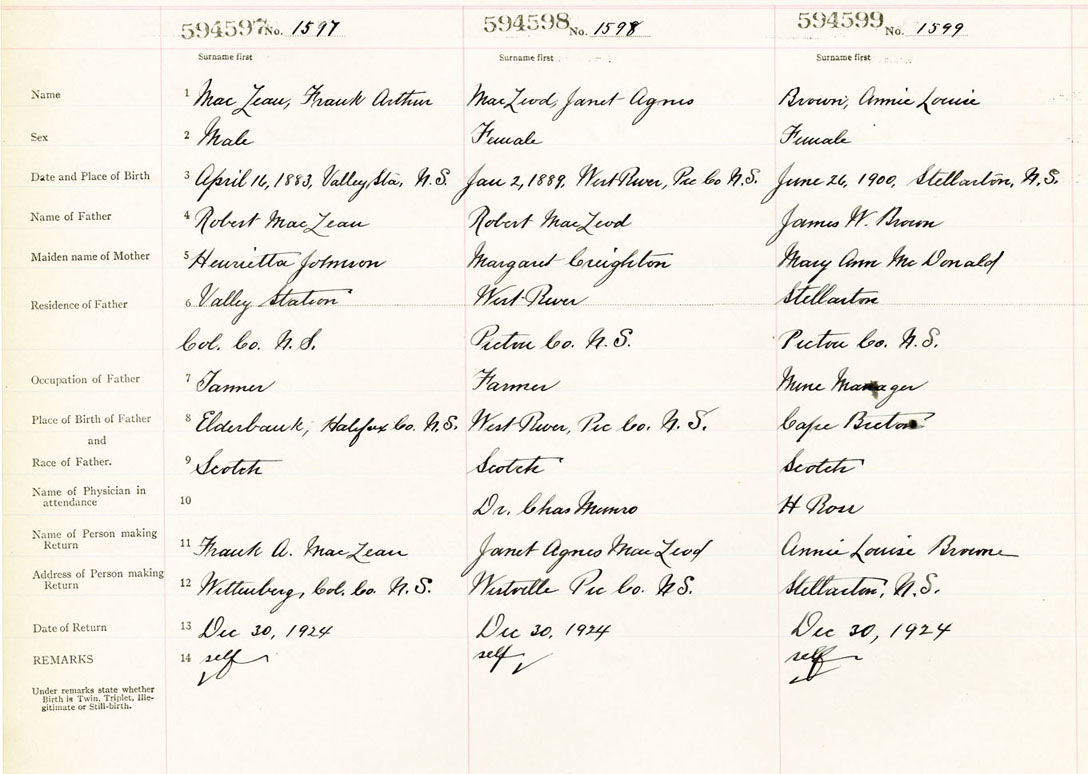 594597 No. 1597 594598 No. 1598 594599 No. 1599
Surname first Surname first Surname first
Name 1 MacLean, Frank Arthur MacLeod, Janet Agnes Brown, Annie Louise
Sex 2 Male Female Female
Date and Place of Birth 3 April 16, 1883, Valley Sta, N.S. Jan 2, 1889, West River, Pic Co N.S. June 26, 1900, Stellarton, N.S.
Name of Father 4 Robert MacLean Robert MacLeod James W. Brown
Maiden name of Mother 5 Henrietta Johnson Margaret Creighton Mary Ann McDonald
Residence of Father 6 Valley Station West River Stellarton
Col. Co. N.S. Pictou Co. N.S. Pictou Co. N.S.
Occupation of Father 7 Tanner Farmer Mine Manager
Place of Birth of Father 8 Elderbank, Halifax Co. N.S. West River, Pic Co. N.S. Cape Breton
and
Race of Father. 9 Scotch Scotch Scotch
Name of Physician in
attendance 10 Dr. Chas Munro H Ross
Name of Person making
Return 11 Frank A. MacLean Janet Agnes MacLeod Annie Louise Browne
Address of Person making
Return 12 Wittenberg, Col. Co. N.S. Westville Pic Co. N.S. Stellarton, N.S.
Date of Return 13 Dec 30, 1924 Dec 30, 1924 Dec 30, 1924
REMARKS 14 self self self
Under remarks state whether
Birth is Twin, Triplet, Ille-
gitimate or Still-birth.